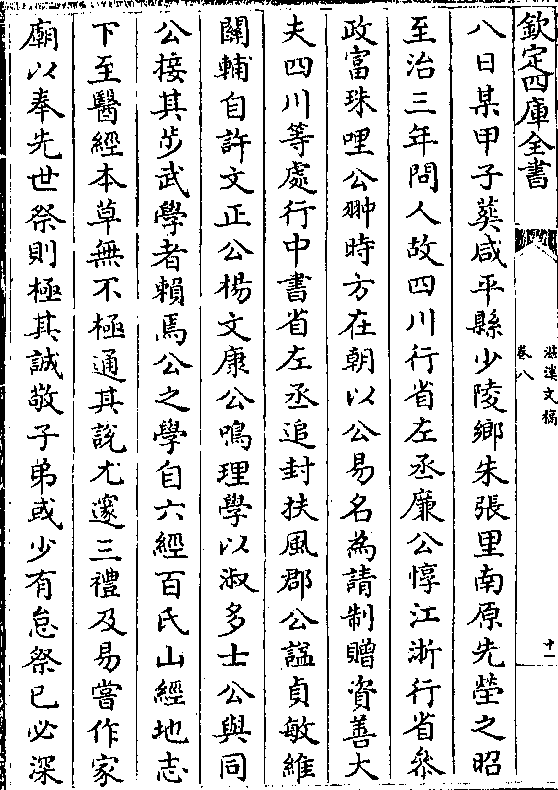 欽定四庫全書
滋溪文稿
卷八
十一
八日某甲子葬咸平縣少陵鄉朱張里南原先塋之昭
至治三年問人故四川行省左丞廉公惇江浙行省參
政富珠哩公翀時方在朝以公易名為請制贈資善大
夫四川等處行中書省左丞追封扶風郡公諡貞敏維
關輔自許文正公楊文康公鳴理學以淑多士公與同
公接其步武學者賴焉公之學自六經百氏山經地志
下至醫經本草無不極通其說尤邃三禮及易嘗作家
廟以奉先世祭則極其誠敬子弟或少有怠祭已必深